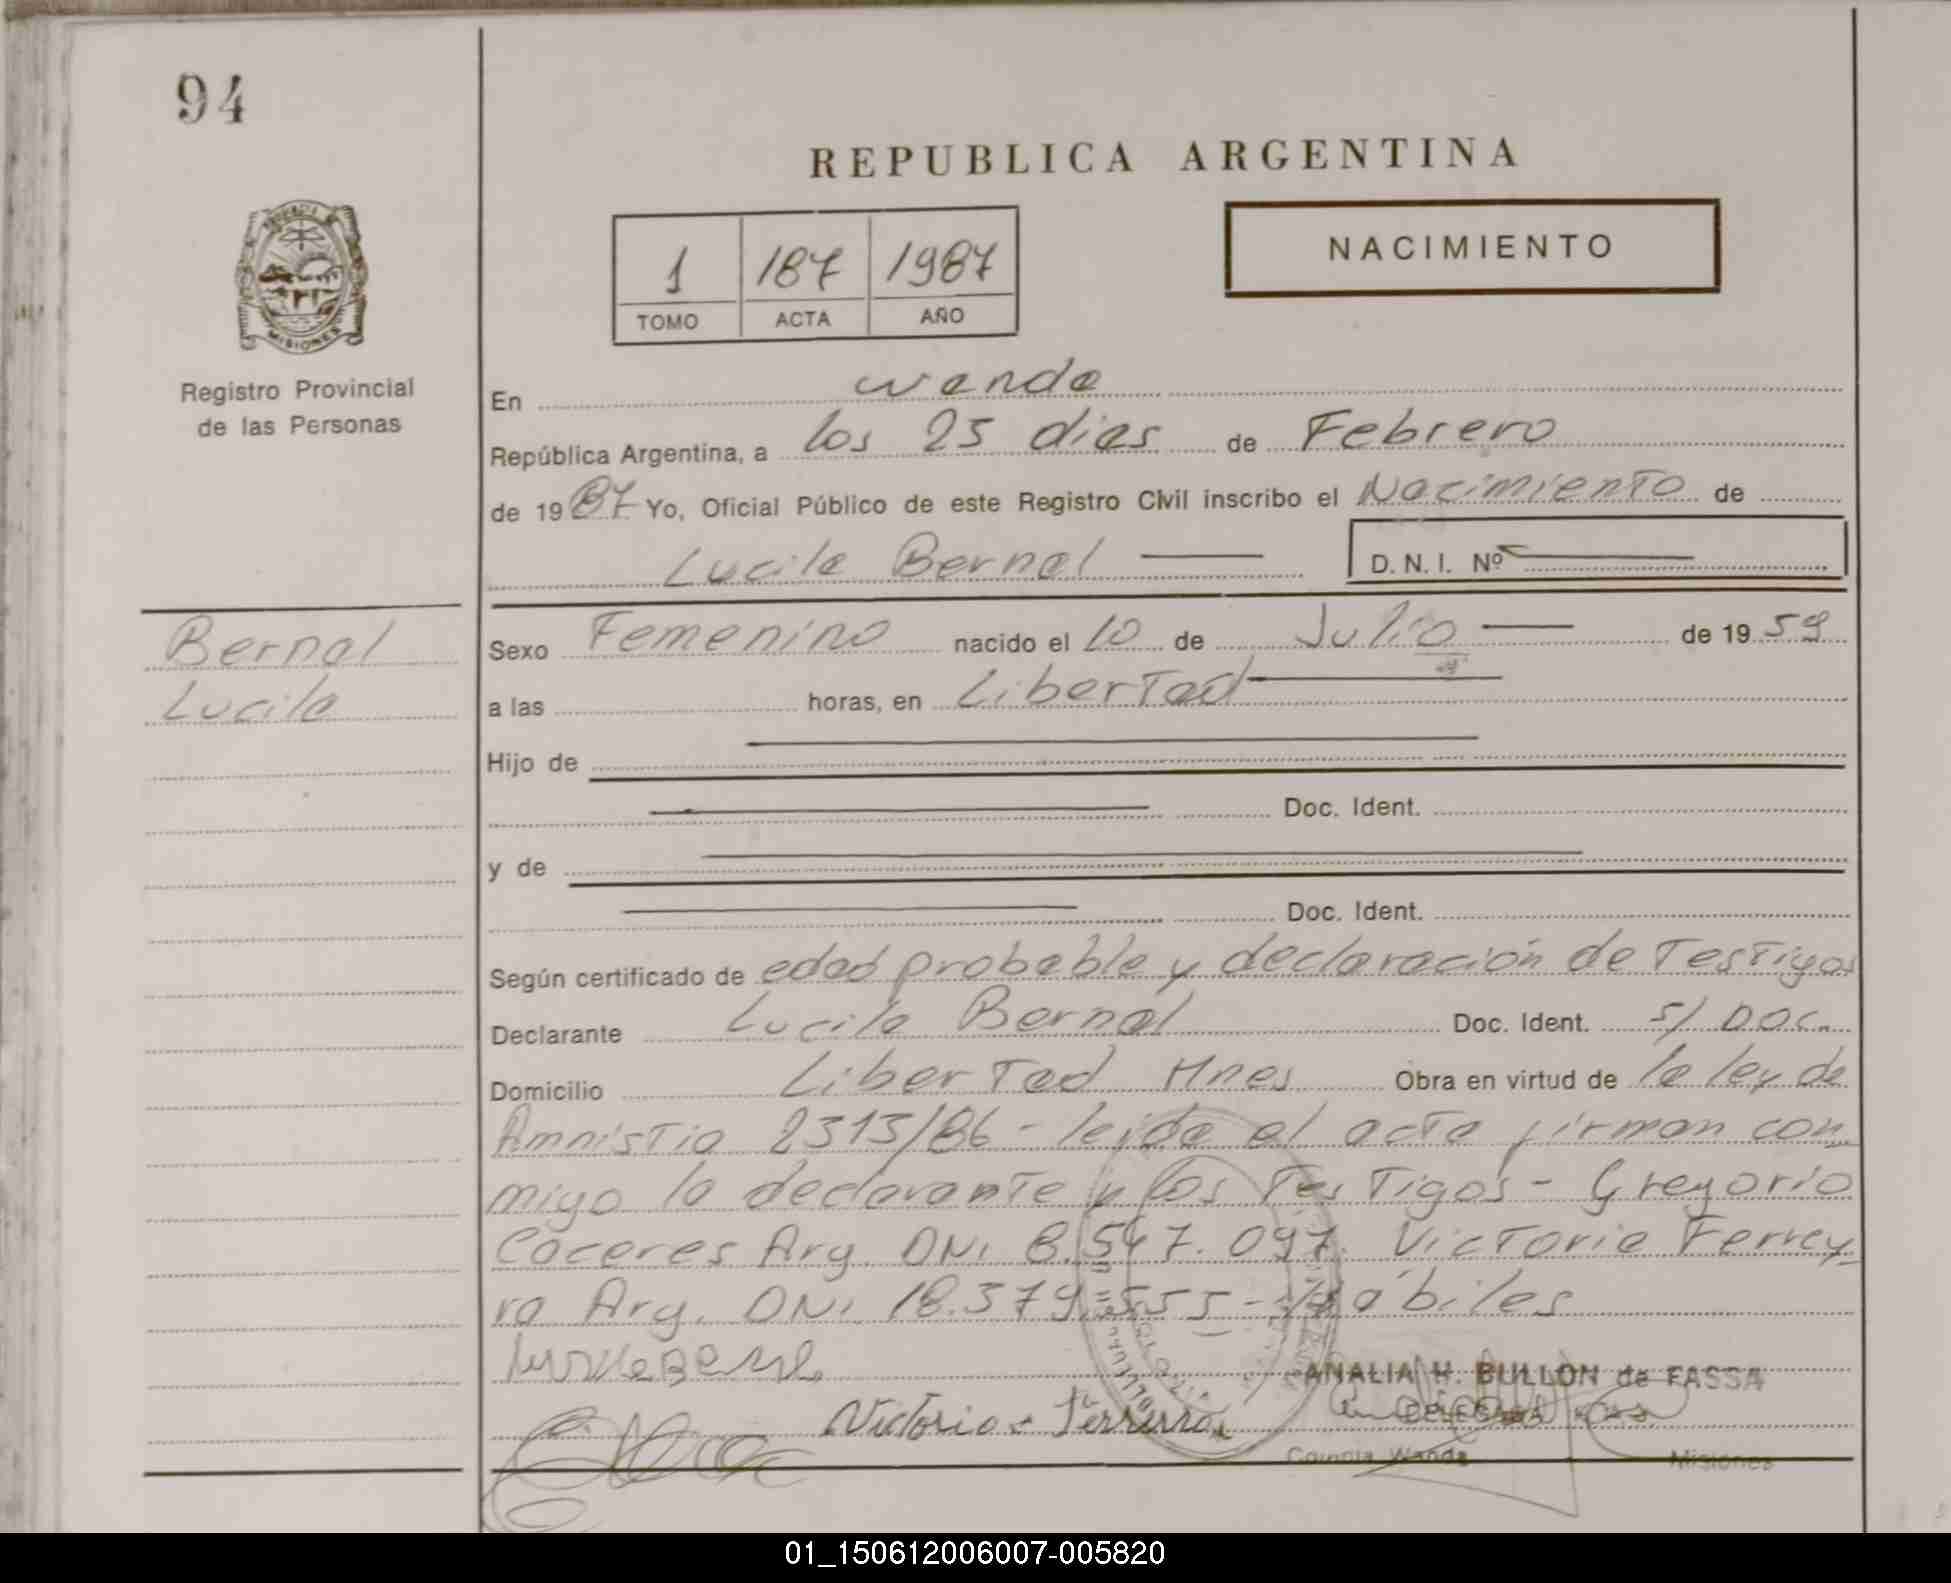 94
REPUBLICA ARGENTINA
NACIMIENTO
1 187 1987
TOMO ACTA AÑO
MISIONES
Registro Provincial
de las Personas
En wanda
República Argentina, a los 25 dias de Febrero
de 1987 Yo, Oficial Público de este Registro Civil inscribo el Nacimiento de
Lucila Bernal
D.N.I. Nº
Bernal
Lucila
Sexo Femenino nacido el 10 de Julio de 1959
a las horas, en Libertad
Hijo de
Doc. Ident.
y de
Doc. Ident.
Según certificado de edad probable y declaración de Testigos
Declarante Lucila Bernal Doc. Ident. s/ DOC.
Domicilio Libertad Mnes Obra en virtud de la ley de
Amnistia 2313/86 - leida el acta firman con
migo la declarante y los Testigos - Gregorio
Caceres Arg. DNi 8.547.097. Victoria Ferrey
ra Arg. DNi 18.379.555 - Hábiles
Victoria Ferreira
ANALIA H. BULLON de FASSA
DELEGADA
Colonia Wanda Misiones
01_150612006007-005820